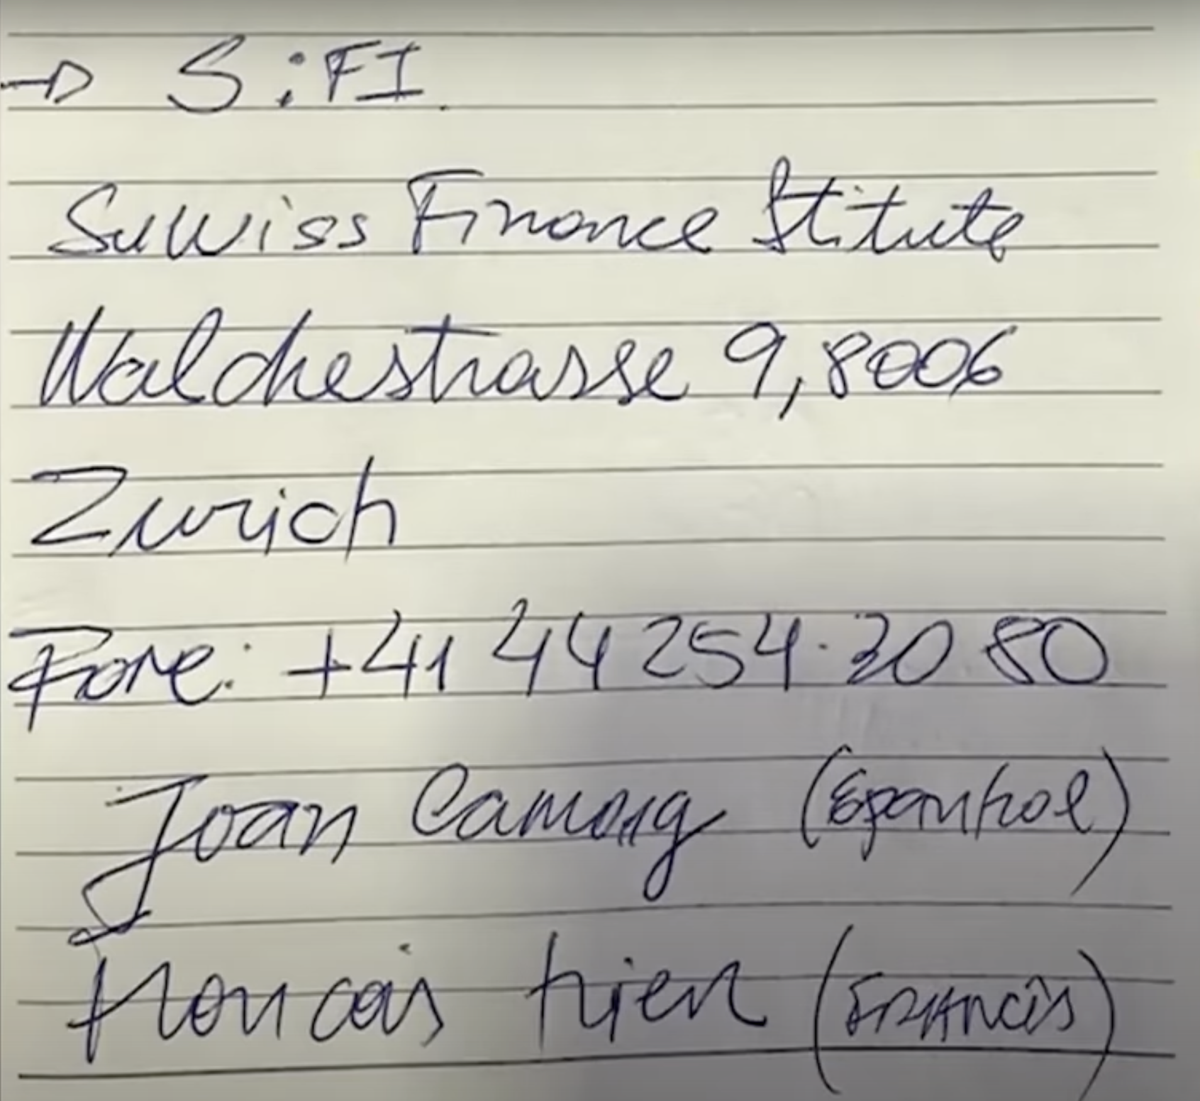 → S:FI.
Suwiss Finance Stitute
Walchestrasse 9,8006
Zurich
Fone: +41 44 254.30 80
Joan (Epanhol)
francais (FRANCÊS)